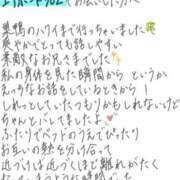 巣鴨のハワイまで行っちゃいました
爽やかでとっても話しやすい
素敵なお兄さまでした
私の身体を見た瞬間から というか
えっちなお話をしているときから！
しれっとしていたつもりかもしれないけど
ちゃんとバレてましたよ
ふたりでベッドのうえでぴったり
お互いの熱を分け合って
近づけば近づくほど離れがたく